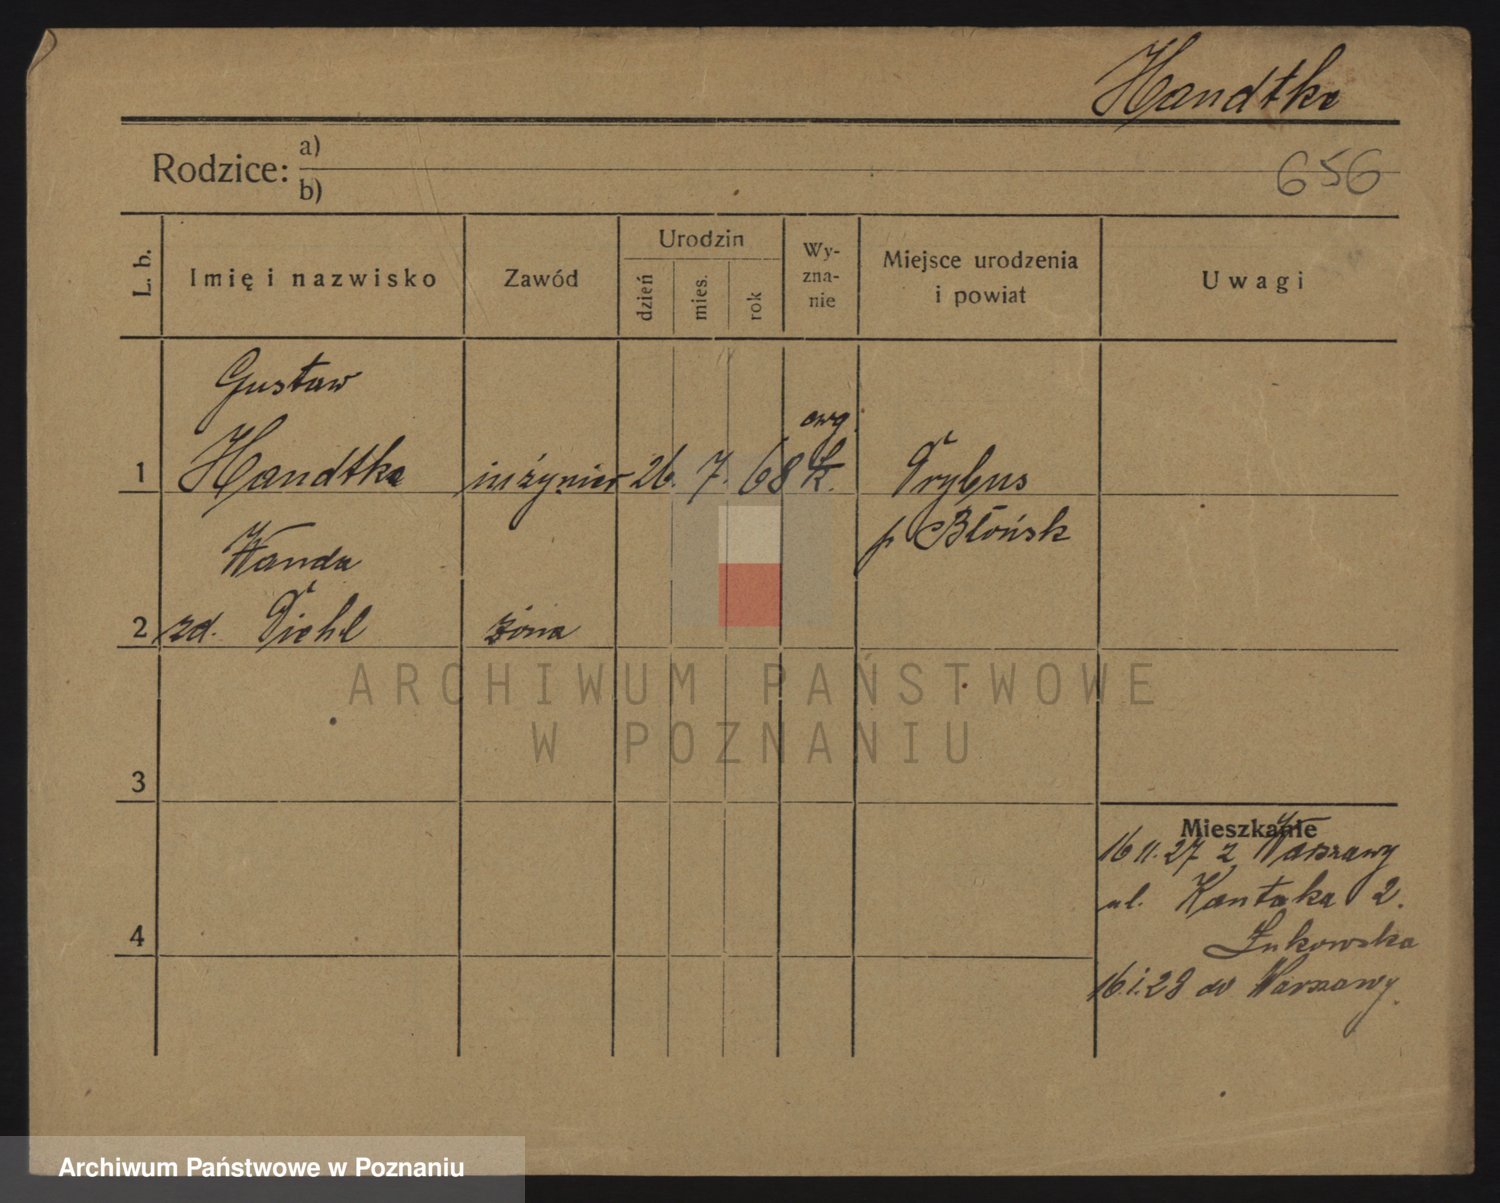 Handtke
Rodzice: a)
b)
656
L. b.
Imię i nazwisko
Zawód
Urodzin
dzień
mies.
rok
Wy-
zna-
nie
Miejsce urodzenia
i powiat
Uwagi
Gustaw
1 Handtke inżynier 26. 7. 68 ewg.
k.
p Błońsk
Wanda
2 zd. Diehl żona
3
4
Mieszkanie
16 11. 27 z Warszawy
ul. Kantaka 2.
Żukowska
16.1.28 do Warszawy.
ARCHIWUM PAŃSTWOWE
W POZNANIU
Archiwum Państwowe w Poznaniu